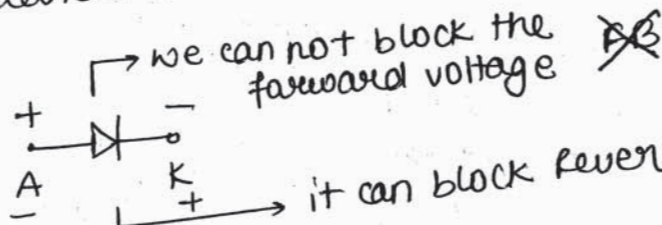 we can not block the
farward voltage
FB
+ −
A K
− +
it can block Rever